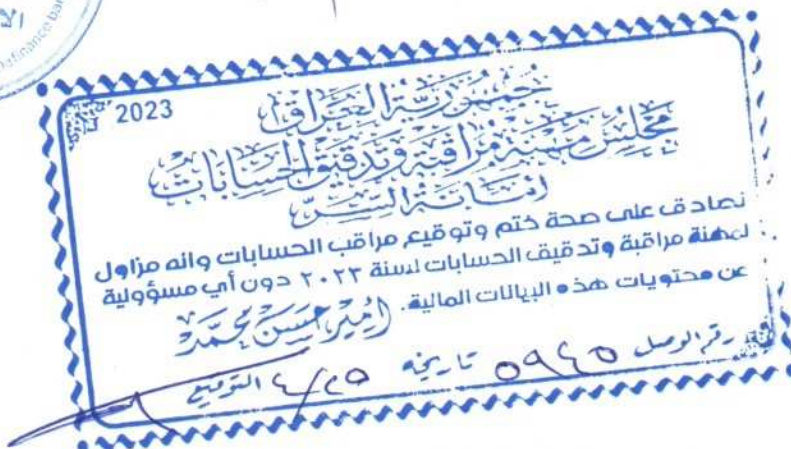 2023
جمهورية العراق
مجلس مهنة مراقبة وتدقيق الحسابات
أمانة السر
نصادق على صحة ختم وتوقيع مراقب الحسابات وانه مزاول
لمهنة مراقبة وتدقيق الحسابات لسنة ٢٠٢٣ دون أي مسؤولية
عن محتويات هذه البيانات المالية.
أمير حسن محمد
رقم الوصل ٥٩٤٥ تاريخه ٤/٢٥ التوقيع